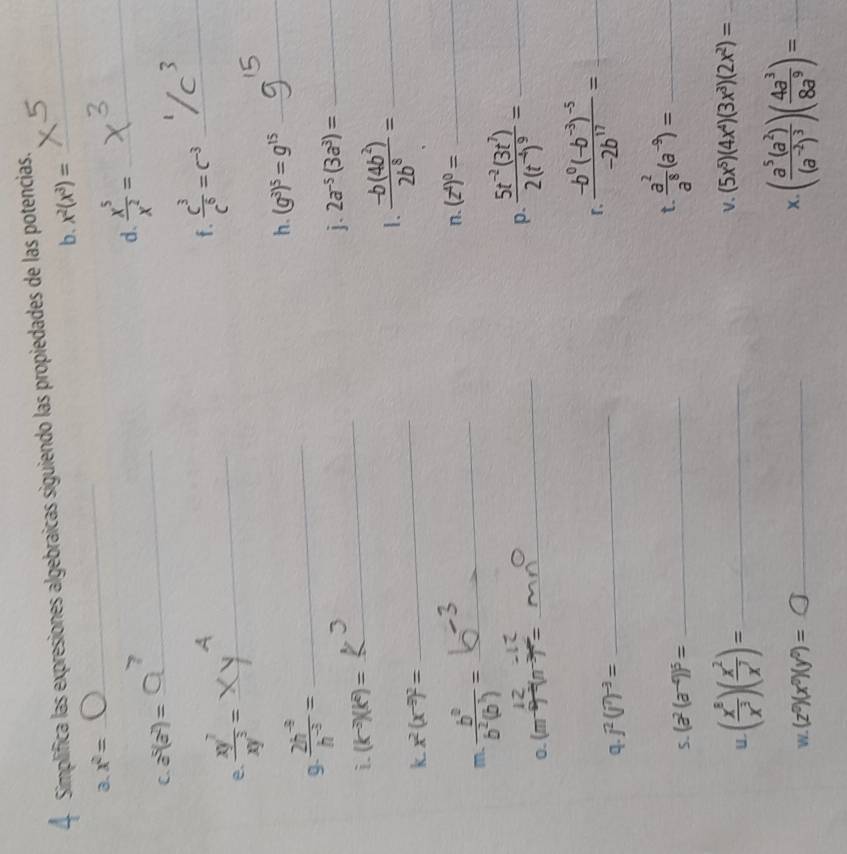 4 Simplifica las expresiones algebraicas siguiendo las propiedades de las potencias.
a. x⁰ = 0
b. x²(x³) = x5
c. a⁵(a²) = a⁷
d. x⁵/x² = x³
e. xy⁷/xy³ = xy⁴
f. c³/c⁶ = c⁻³ 1/c³
g. 2h⁻⁹/h⁻³ =
h. (g³)⁵ = g¹⁵ g15
j. 2a⁻⁵(3a³) =
l. -b(4b²)/2b⁸ =
n. (z⁴)⁰ =
m. b⁰/b²(b¹) = b⁻³
p. 5t⁻²(3t⁷)/2(t⁻⁴)⁹ =
12 -12
= mn⁰
r. -b⁰(-b⁻³)⁻⁵/-2b¹⁷ =
t. a²/a⁸(a⁻⁹) =
u. (x⁸/x³)(x²/x⁷) =
v. (5x⁵)(4x⁴)(3x³)(2x²) =
x. (a⁵(a²)/(a⁻²)³)(4a³/8a⁹) =